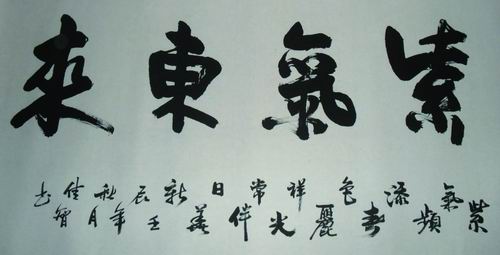 紫氣東來
紫氣頻添春色麗祥光常伴日新壬辰年秋月佳书